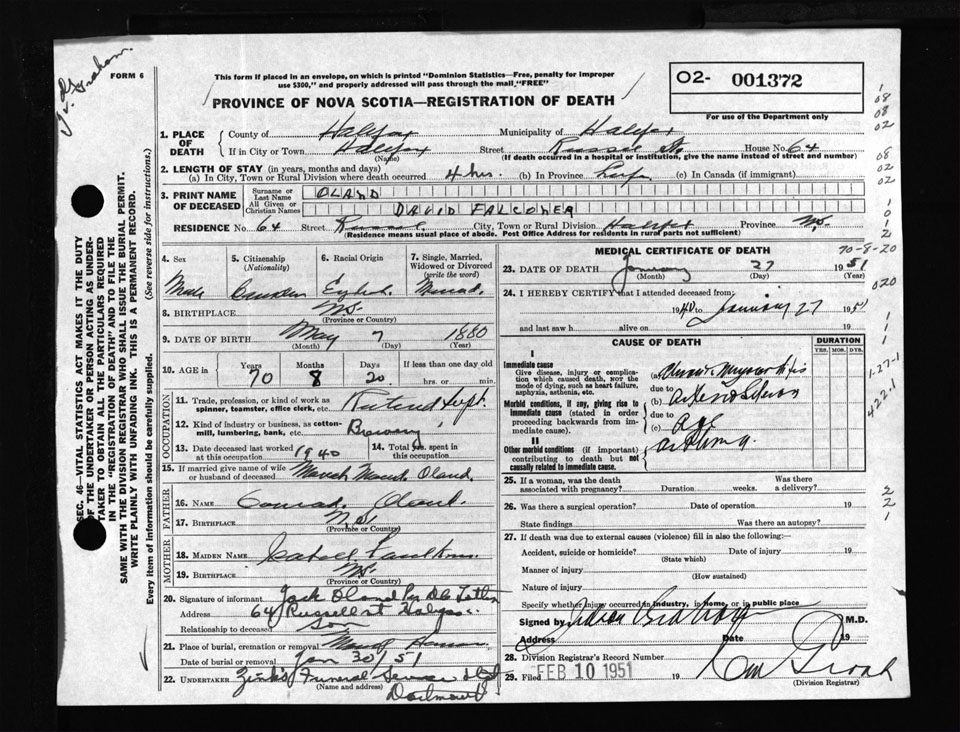 Graham.
FORM 6
This form if placed in an envelope, on which is printed "Dominion Statistics—Free, penalty for improper
use $300," and properly addressed will pass through the mail "FREE"
PROVINCE OF NOVA SCOTIA—REGISTRATION OF DEATH
O2- 001372
For use of the Department only
1. PLACE OF DEATH
County of Halifax Municipality of Halifax
If in City or Town Halifax Street Russell St. House No. 64
(Name) (If death occurred in a hospital or institution, give the name instead of street and number)
2. LENGTH OF STAY (in years, months and days)
(a) In City, Town or Rural Division where death occurred 4 hrs. (b) In Province Life (c) In Canada (if immigrant)
3. PRINT NAME OF DECEASED
Surname or Last Name OLAND
All Given or Christian Names DAVID FALCONER
RESIDENCE No. 64 Street Russell City, Town or Rural Division Halifax Province N.S.
(Residence means usual place of abode. Post Office Address for residents in rural parts not sufficient)
4. Sex Male
5. Citizenship (Nationality) Canadian
6. Racial Origin English
7. Single, Married, Widowed or Divorced (write the word) Married.
8. BIRTHPLACE N.S.
(Province or Country)
9. DATE OF BIRTH May 7 1880
(Month) (Day) (Year)
10. AGE in Years 70 Months 8 Days 20 If less than one day old hrs. or min.
OCCUPATION
11. Trade, profession, or kind of work as spinner, teamster, office clerk, etc. Retired Supt.
12. Kind of industry or business, as cotton-mill, lumbering, bank, etc. Brewery
13. Date deceased last worked at this occupation 1940
14. Total yrs. spent in this occupation
15. If married give name of wife or husband of deceased Oland.
FATHER
16. NAME Conrad Oland.
17. BIRTHPLACE N.S.
(Province or Country)
MOTHER
18. MAIDEN NAME
19. BIRTHPLACE N.S.
(Province or Country)
20. Signature of informant Jack Oland
Address 64 Russell St Halifax
Relationship to deceased Son
21. Place of burial, cremation or removal Mount Hermon
Date of burial or removal Jan 30/51
22. UNDERTAKER Zink's Funeral Service Ltd
(Name and address) Dartmouth
MEDICAL CERTIFICATE OF DEATH
70-8-20
23. DATE OF DEATH January 27 1951
(Month) (Day) (Year)
24. I HEREBY CERTIFY that I attended deceased from:
1940 to January 27 1951
and last saw h alive on 19
CAUSE OF DEATH
DURATION
YRS. MOS. DYS.
I
Immediate cause
Give disease, injury or complication which caused death, NOT the mode of dying, such as heart failure, asphyxia, asthenia, etc.
(a) Chronic Myocarditis
due to
Morbid conditions, if any, giving rise to immediate cause (stated in order proceeding backwards from immediate cause).
(b) Arteriosclerosis
due to
(c) Age
II
Other morbid conditions (if important) contributing to death but not causally related to immediate cause.
Asthma.
25. If a woman, was the death associated with pregnancy? Duration weeks. Was there a delivery?
26. Was there a surgical operation? Date of operation 19
State findings Was there an autopsy?
27. If death was due to external causes (violence) fill in also the following:
Accident, suicide or homicide? Date of injury 19
(State which)
Manner of injury
(How sustained)
Nature of injury
Specify whether injury occurred in industry, in home, or in public place
Signed by M.D.
Address Date 19
28. Division Registrar's Record Number
29. Filed FEB 10 1951 19
(Division Registrar)
SEC. 46—VITAL STATISTICS ACT MAKES IT THE DUTY
OF THE UNDERTAKER OR PERSON ACTING AS UNDER-
TAKER TO OBTAIN ALL THE PARTICULARS REQUIRED
IN THE "REGISTRATION OF DEATH" AND TO FILE THE
SAME WITH THE DIVISION REGISTRAR WHO SHALL ISSUE THE BURIAL PERMIT.
WRITE PLAINLY WITH UNFADING INK. THIS IS A PERMANENT RECORD.
Every item of information should be carefully supplied. (See reverse side for instructions.)
1
08
08
02
08
02
02
1
0
1
0
2
020
1
1
1
1-27-1
422.1
2
2
1